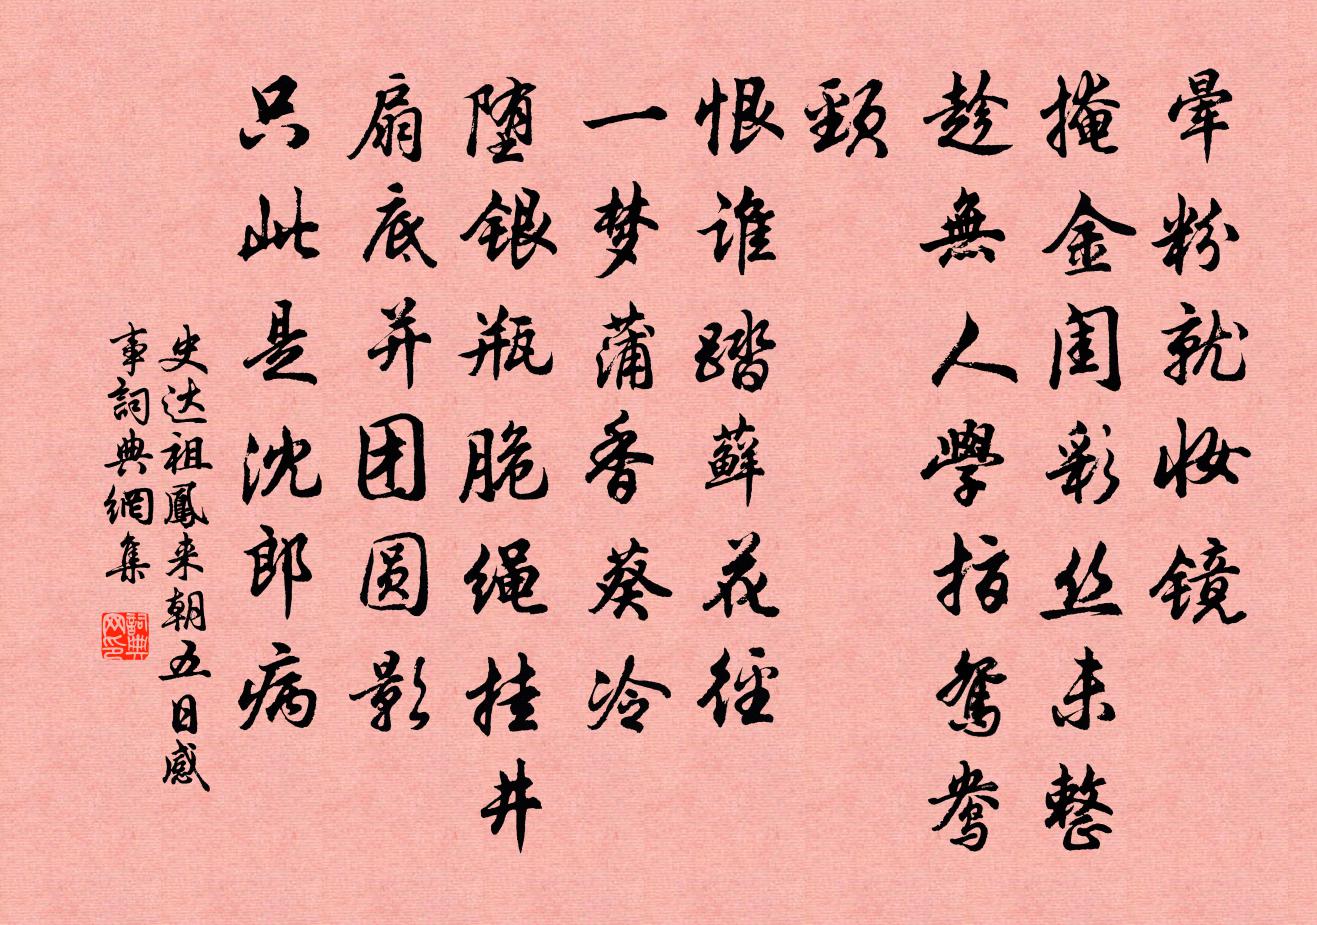 晕粉就妆镜
掩金闺彩丝未整
趁無人學指鸳鸯
颈
恨谁踏藓花径
一梦蒲香葵冷
堕银瓶脆绳挂井
扇底并团圆影
只此是沈郎病
史达祖鳳来朝五日感
事詞典網集
詞典网印